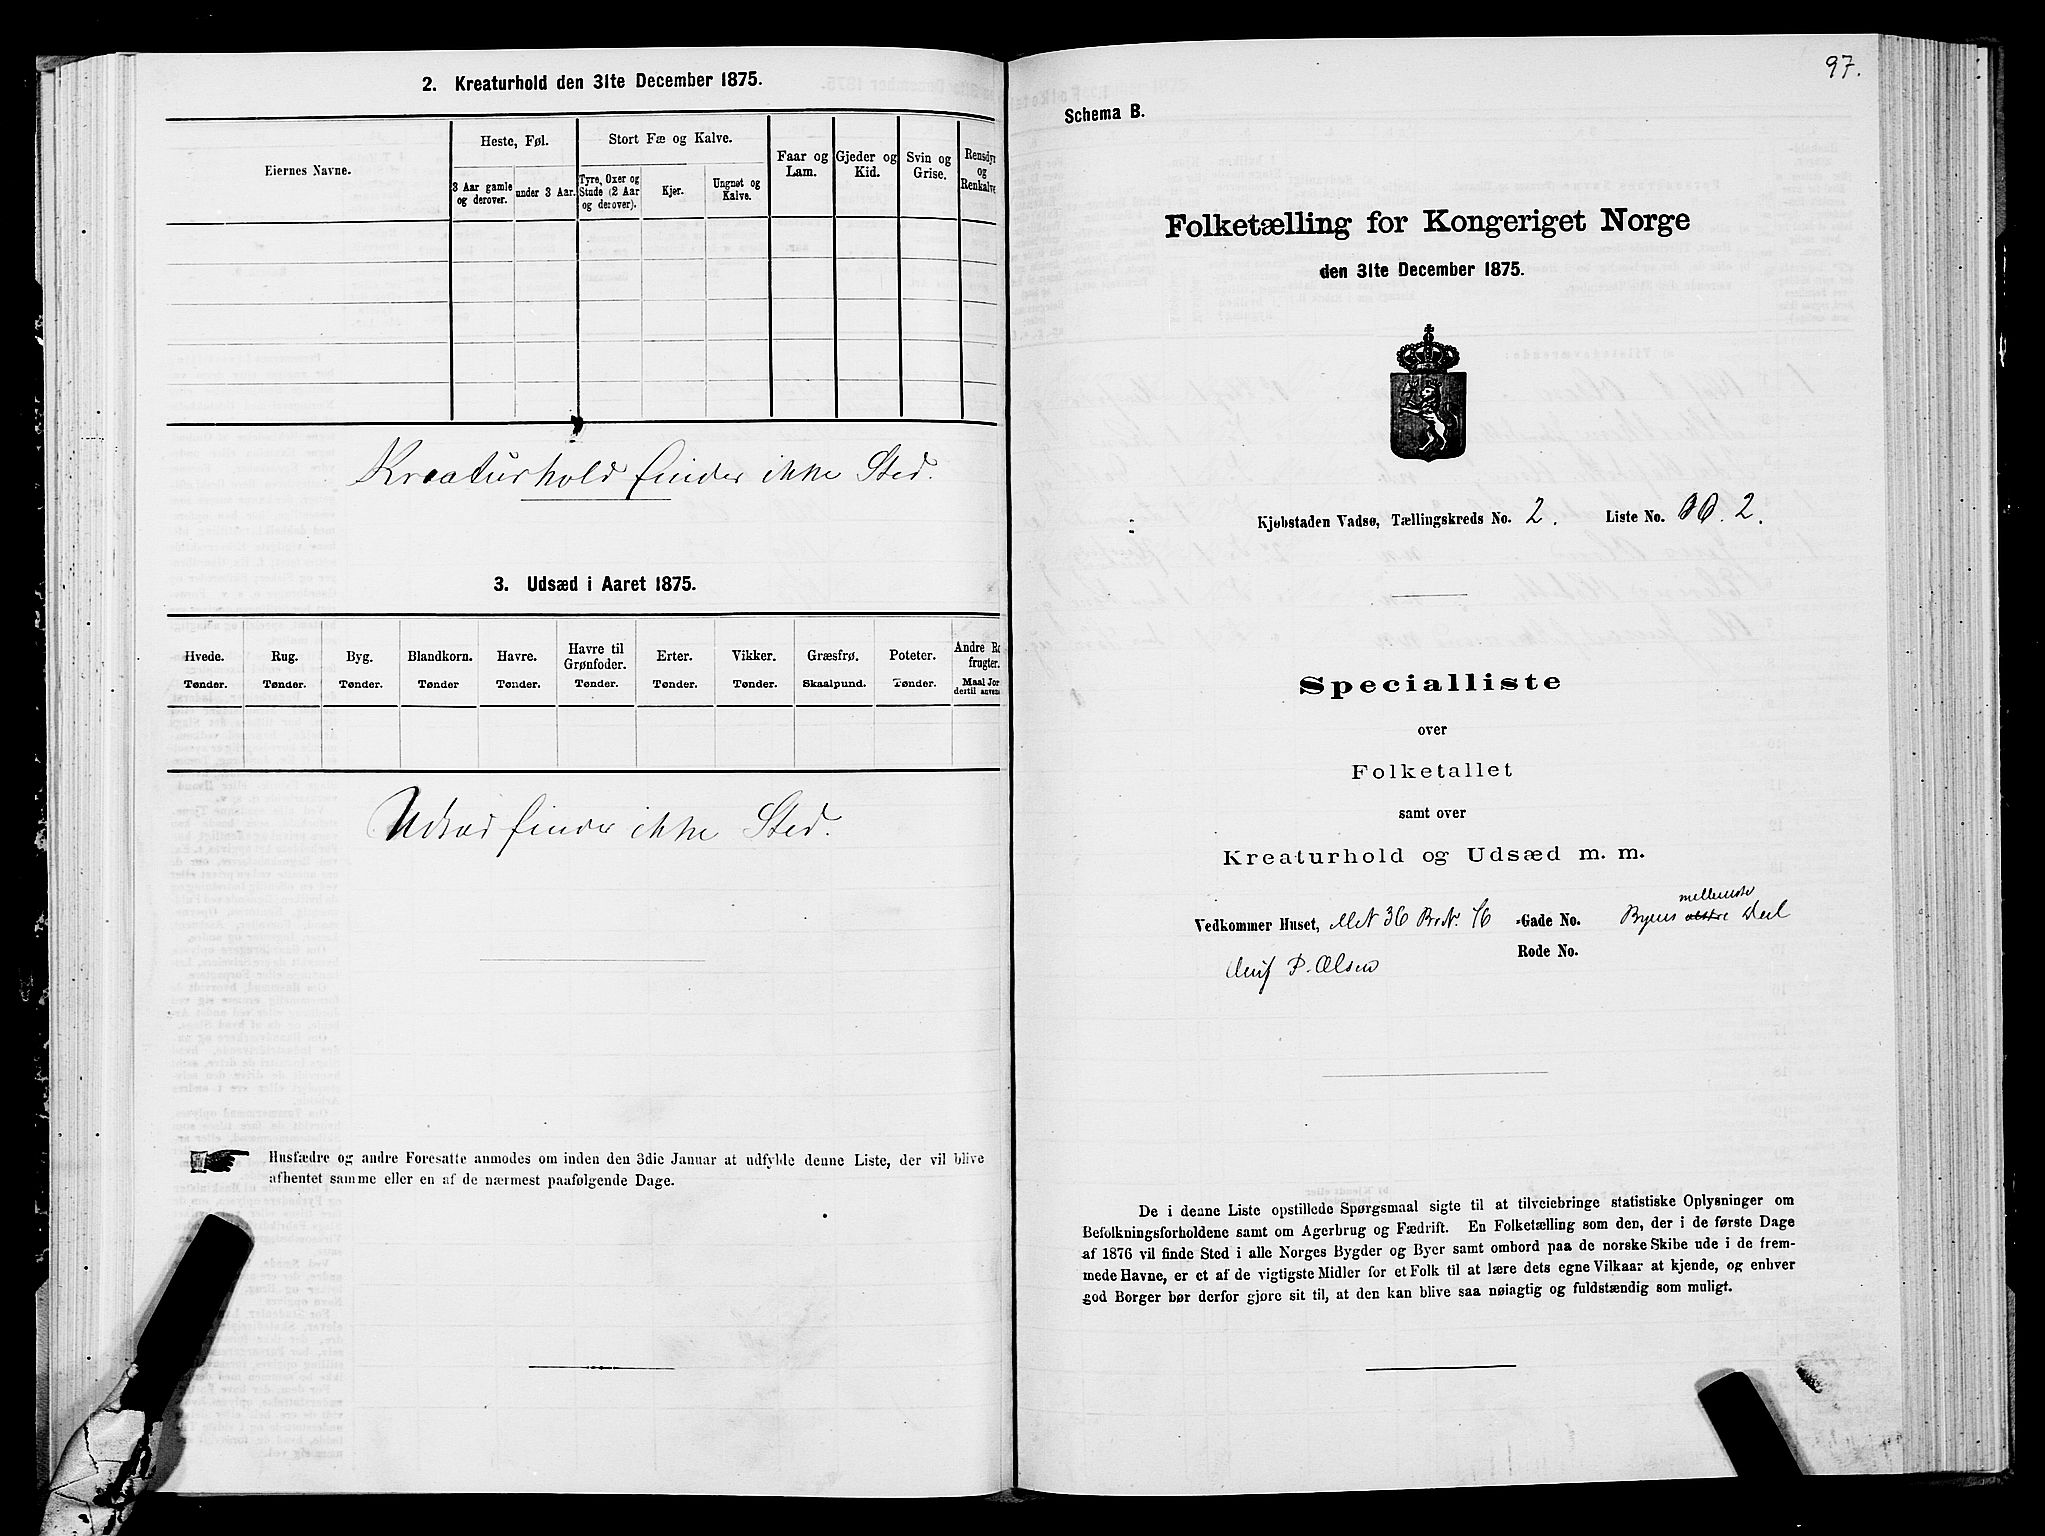 2. Kreaturhold den 31te December 1875.
Eiernes Navne.
Heste, Føl.
3 Aar gamle og derover.
under 3 Aar.
Stort Fæ og Kalve.
Tyre, Oxer og Stude (2 Aar og derover).
Kjer.
Ungnøt og Kalve.
Faar og Lam.
Gjeder og Kid.
Svin og Grise.
Rensdyr og Renkalve
Kreaturhold finder ikke Sted.
3. Udsæd i Aaret 1875.
Hvede. Rug. Byg. Blandkorn. Havre. Havre til Grønfoder. Erter. Vikker. Græsfrø. Poteter. Andre Ro frugter.
Tønder. Tønder. Tønder. Tønder Tønder. Tønder. Tønder. Tønder. Skaalpund. Tønder. Maal Jor dertil anvend
Udsæd finder ikke Sted.
Husfædre og andre Foresatte anmodes om inden den 3die Januar at udfylde denne Liste, der vil blive
afhentet samme eller en af de nærmest paafølgende Dage.
97.
Schema B.
Folketælling for Kongeriget Norge
den 31te December 1875.
Kjøbstaden Vadsø, Tællingskreds No. 2. Liste No. 2.
Specialliste
over
Folketallet
samt over
Kreaturhold og Udsæd m. m.
mellemste
Vedkommer Huset, Mat N 36 Br N. 76 -Gade No. Byens østre Deel
Rode No.
P. Olsen
De i denne Liste opstillede Spørgsmaal sigte til at tilveiebringe statistiske Oplysninger om
Befolkningsforholdene samt om Agerbrug og Fædrift. En Folketælling som den, der i de første Dage
af 1876 vil finde Sted i alle Norges Bygder og Byer samt ombord paa de norske Skibe ude i de frem-
mede Havne, er et af de vigtigste Midler for et Folk til at lære dets egne Vilkaar at kjende, og enhver
god Borger bør derfor gjøre sit til, at den kan blive saa nøiagtig og fuldstændig som muligt.